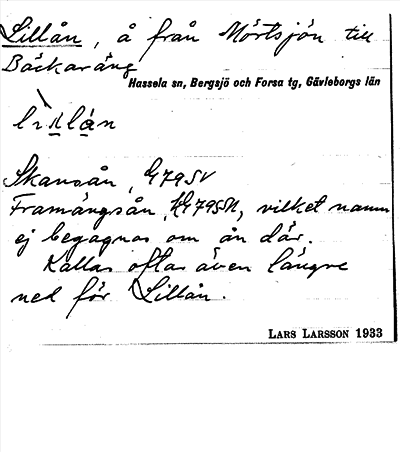 Lillån, å från Mörtsjön till
Bäckaräng
Hassela sn, Bergsjö och Forsa tg, Gävleborgs län
Skansån, G795V
Framängsån, G795SN, vilket namn
ej begagnas om ån där.
Kallas oftas även längre
ned för Lillån.
LARS LARSSON 1933